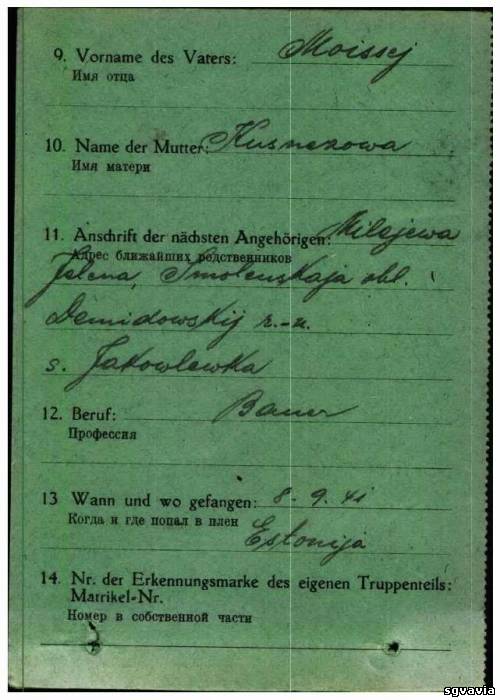 9. Vorname des Vaters: Moissej
Имя отца
10. Name der Mutter: Kusnezowa
Имя матери
11. Anschrift der nächsten Angehörigen: Milejewa
Адрес ближайших родственников
Jelena, Smolenskaja obl.
Demidowskij r.-n.
s. Jakowlewka
12. Beruf: Bauer
Профессия
13 Wann und wo gefangen: 8-9.41
Когда и где попал в плен
Estonija
14. Nr. der Erkennungsmarke des eigenen Truppenteils:
Matrikel-Nr.
Номер в собственной части
sgvavia